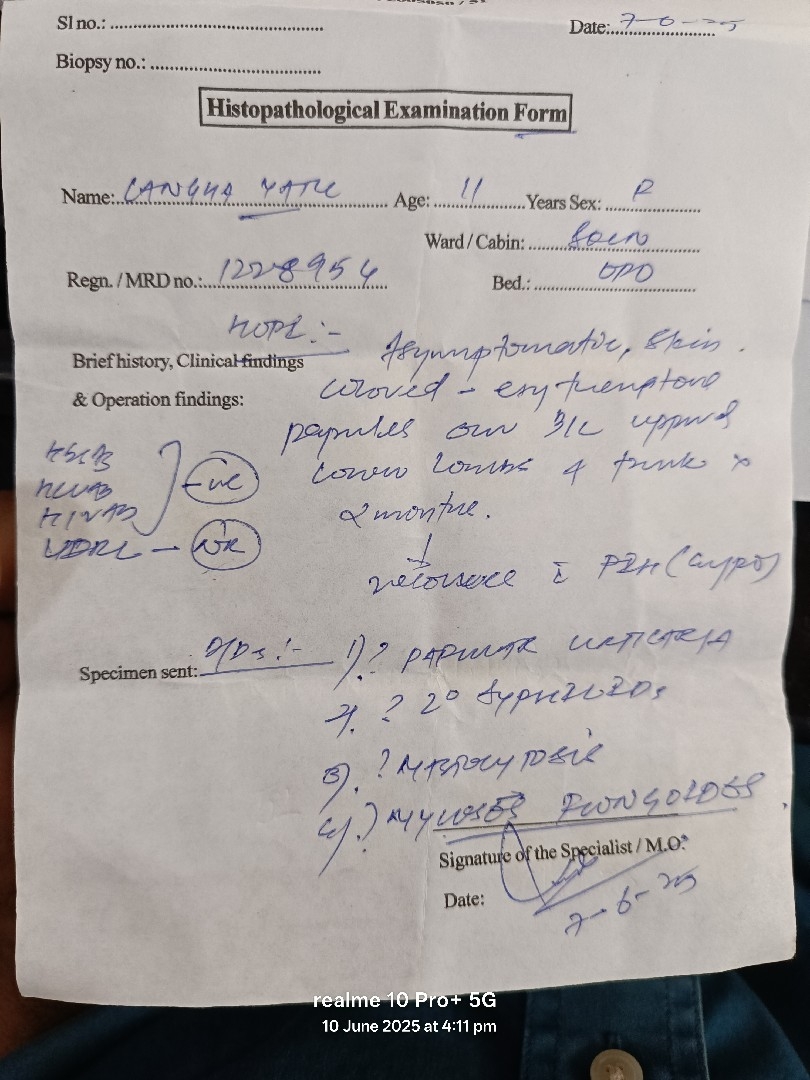 Sl no.: ..........................
Date: 7-6-25
Biopsy no.: ..........................
Histopathological Examination Form
Name: Age: 11 Years Sex: F
Ward / Cabin: Skin
Regn. / MRD no.: 1228954 Bed.: OPD
HOPI :-
Brief history, Clinical findings Asymptomatic, skin
& Operation findings: coloured - erythematous
papules over B/L upper
HBsAg lower limbs & trunk x
HCVAB -ve 2 months.
HIVAB
VDRL - NR
↓
recurrence
Specimen sent: D/Ds :- 1) ? PAPULAR URTICARIA
2). ? 2° SYPHILIDS
3). ? MASTOCYTOSIS
4).) MYCOSES FUNGOIDES
Signature of the Specialist / M.O.
Date: 7-6-25
realme 10 Pro+ 5G
10 June 2025 at 4:11 pm